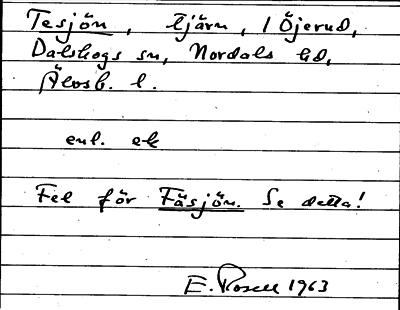 Tesjön, tjärn, i Öjerud,
Dalskogs sn, Nordals hd,
Älvsb. l.
enl. ek
Fel för Fäsjön. Se detta!
E. Rosell 1963